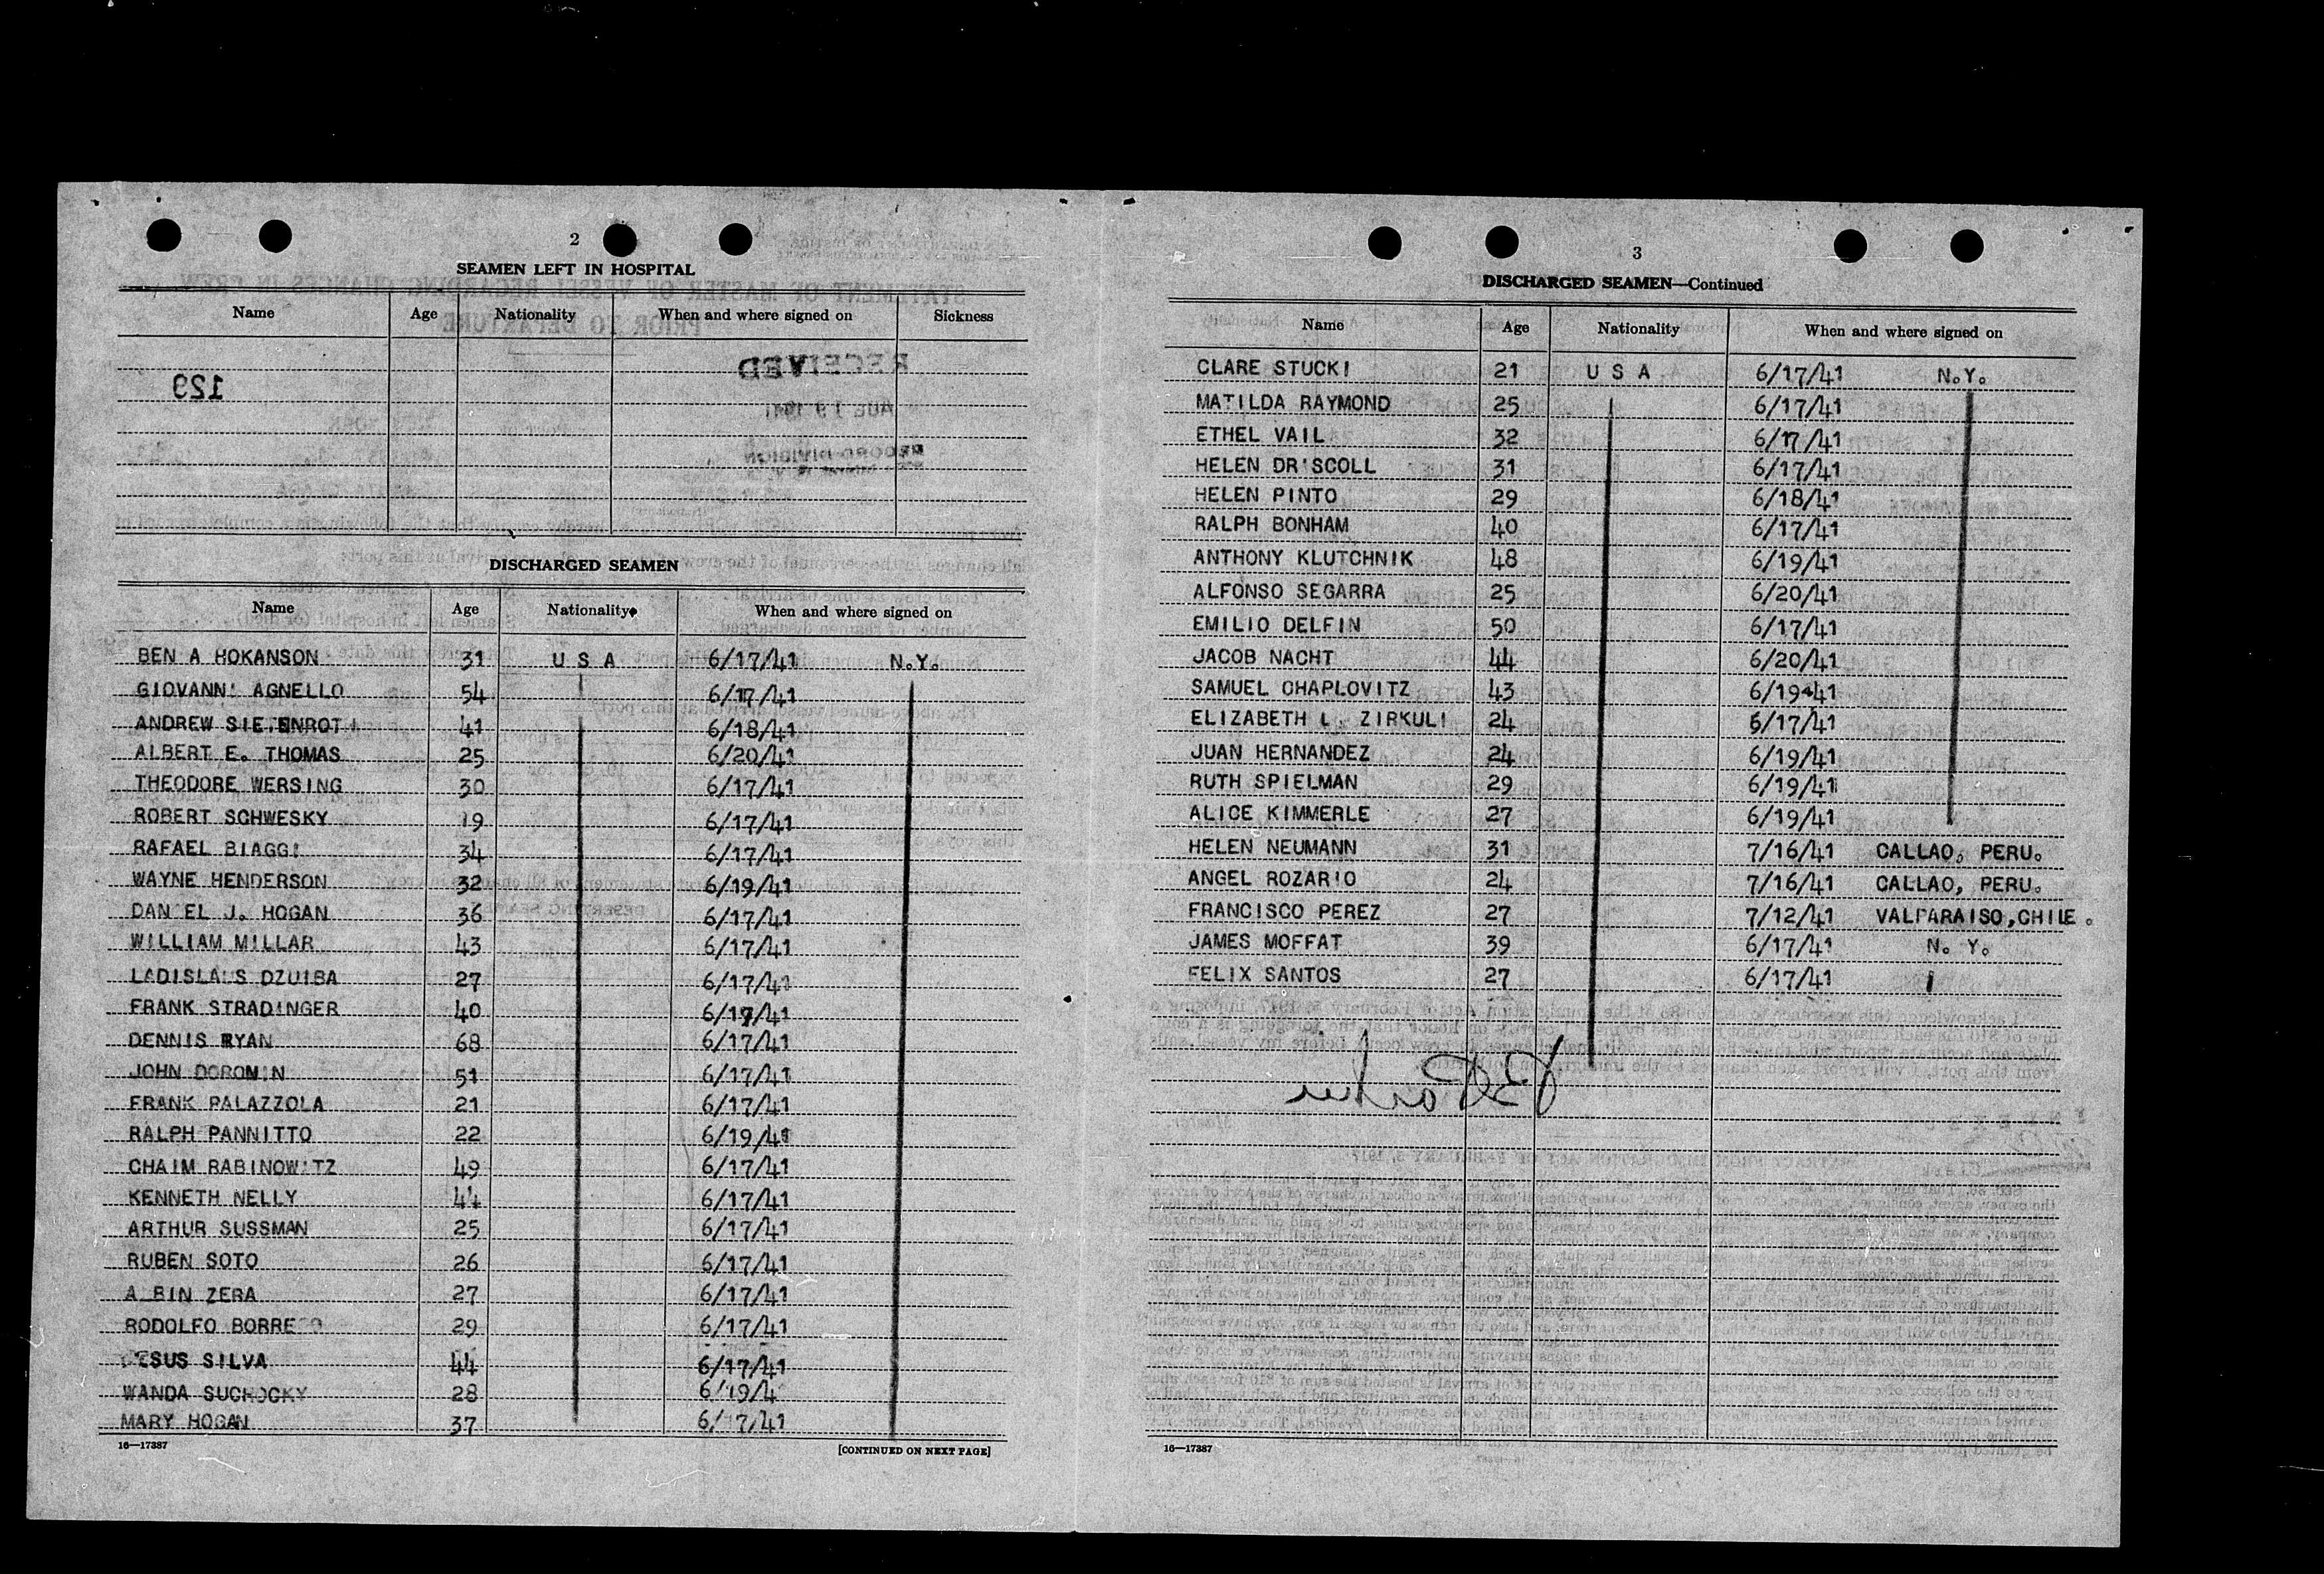 2
SEAMEN LEFT IN HOSPITAL
Name Age Nationality When and where signed on Sickness
129
RECEIVED
AUG 19 1941
RECORD DIVISION
DISCHARGED SEAMEN
Name Age Nationality When and where signed on
BEN A HOKANSON 31 U S A 6/17/41 N.Y.
GIOVANNI AGNELLO 54 6/17/41
ANDREW 41 6/18/41
ALBERT E. THOMAS 25 6/20/41
THEODORE WERSING 30 6/17/41
ROBERT SCHWESKY 19 6/17/41
RAFAEL BIAGGI 34 6/17/41
WAYNE HENDERSON 32 6/19/41
DANIEL J. HOGAN 36 6/17/41
WILLIAM MILLAR 43 6/17/41
LADISLAUS DZUIBA 27 6/17/41
FRANK STRADINGER 40 6/17/41
DENNIS RYAN 68 6/17/41
JOHN DOROMIN 51 6/17/41
FRANK PALAZZOLA 21 6/17/41
RALPH PANNITTO 22 6/19/41
CHAIM RABINOWITZ 49 6/17/41
KENNETH NELLY 44 6/17/41
ARTHUR SUSSMAN 25 6/17/41
RUBEN SOTO 26 6/17/41
ALBIN ZERA 27 6/17/41
RODOLFO 29 6/17/41
JESUS SILVA 44 6/17/41
WANDA SUCHOCKY 28 6/19/4
MARY HOGAN 37 6/17/41
16—17387 [CONTINUED ON NEXT PAGE]
3
DISCHARGED SEAMEN—Continued
Name Age Nationality When and where signed on
CLARE STUCKI 21 U S A 6/17/41 N.Y.
MATILDA RAYMOND 25 6/17/41
ETHEL VAIL 32 6/17/41
HELEN DRISCOLL 31 6/17/41
HELEN PINTO 29 6/18/41
RALPH BONHAM 40 6/17/41
ANTHONY KLUTCHNIK 48 6/19/41
ALFONSO SEGARRA 25 6/20/41
EMILIO DELFIN 50 6/17/41
JACOB NACHT 44 6/20/41
SAMUEL CHAPLOVITZ 43 6/19/41
ELIZABETH L. ZIRKULI 24 6/17/41
JUAN HERNANDEZ 24 6/19/41
RUTH SPIELMAN 29 6/19/41
ALICE KIMMERLE 27 6/19/41
HELEN NEUMANN 31 7/16/41 CALLAO, PERU.
ANGEL ROZARIO 24 7/16/41 CALLAO, PERU.
FRANCISCO PEREZ 27 7/12/41 VALPARAISO, CHILE.
JAMES MOFFAT 39 6/17/41 N. Y.
FELIX SANTOS 27 6/17/41
16—17387